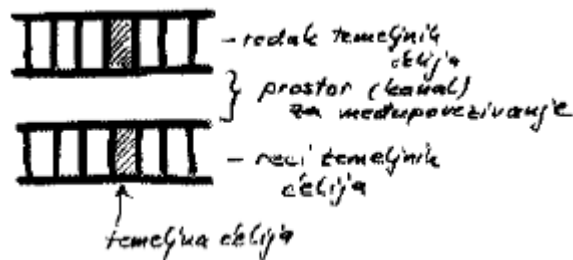 - redak temeljnih
ćelija
prostor (kanal)
za međupovezivanje
- reci temeljnih
ćelija
temeljna ćelija